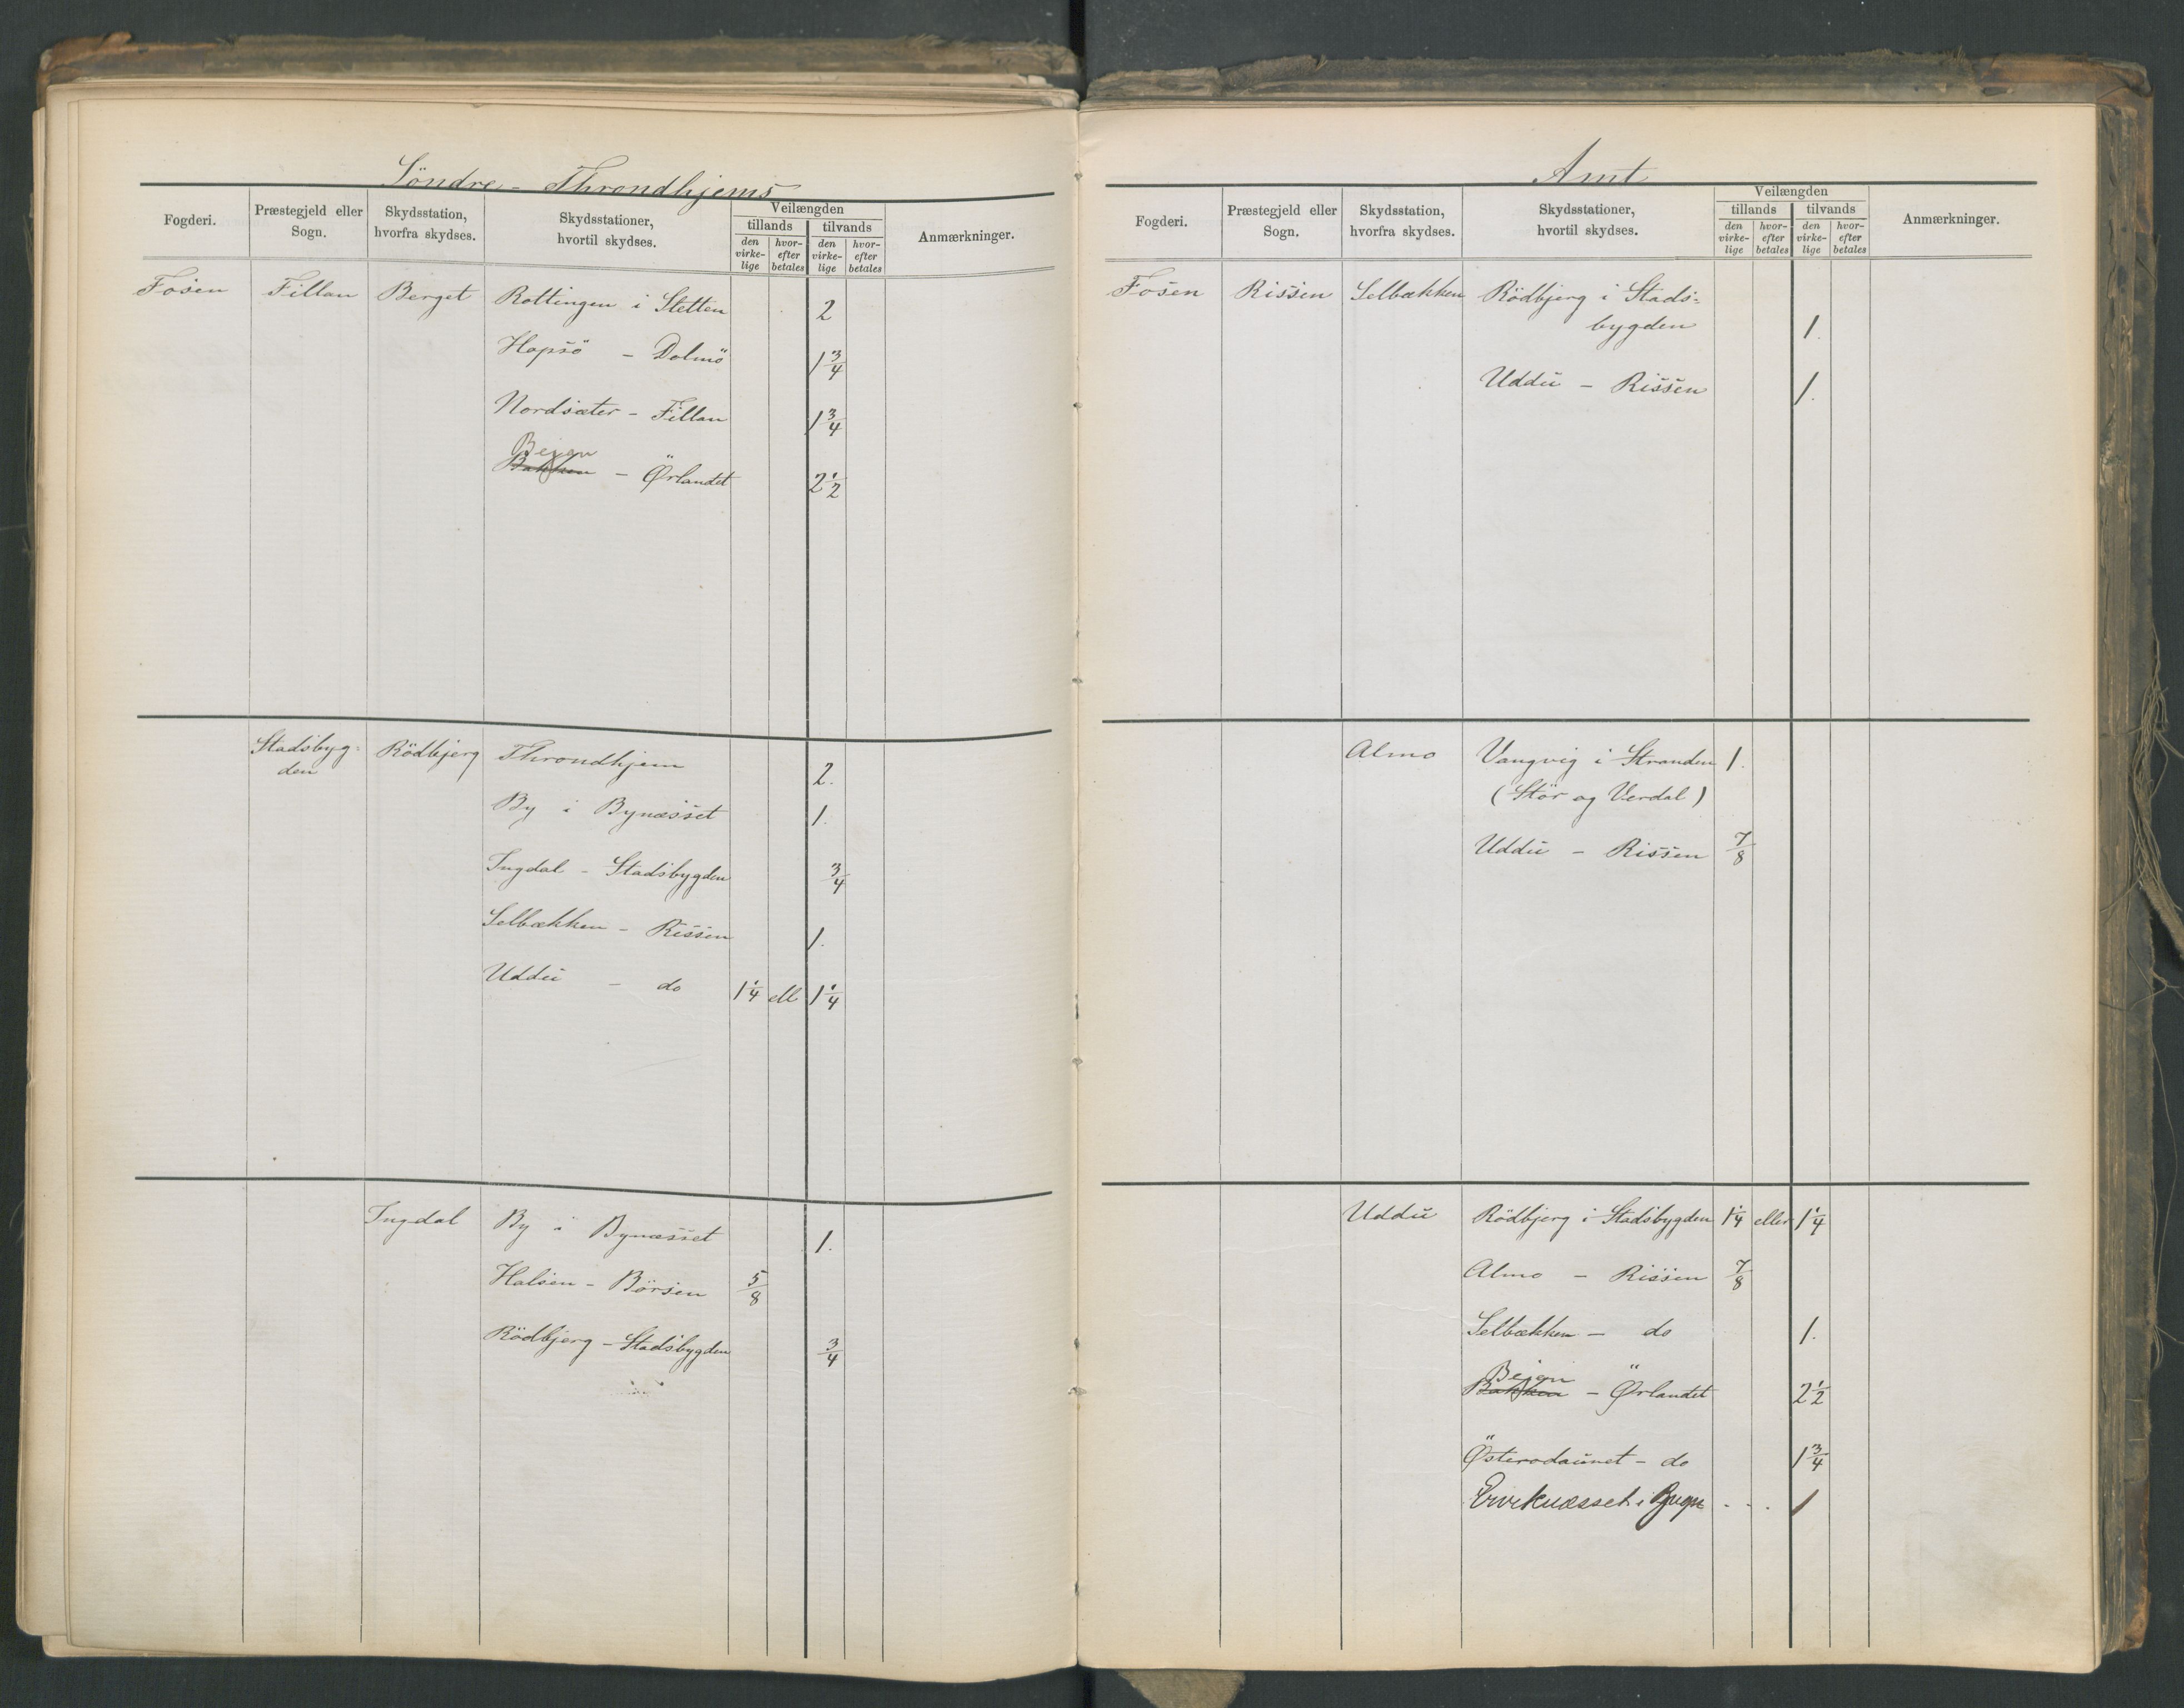 Söndre - Throndhjems
Fogderi. Præstegjeld eller Sogn. Skydsstation, hvorfra skydses. Skydsstationer, hvortil skydses. Veilængden tillands tilvands den virke-lige hvor-efter betales den virke-lige hvor-efter betales Anmærkninger.
Fosen Fillan Berget Rottingen i Stetten 2
Hopsö - Dolmö 1 3/4
Nordsæter - Fillan 1 3/4
Bejan
Bakken - Ørlandet 2 1/2
Stadsbyg-
den Rödbjerg Throndhjem 2.
By i Bynæsset 1.
Ingdal - Stadsbygden 3/4
Selbækken - Rissen 1.
Uddu - do 1 1/4 ell 1 1/4
Ingdal By i Bynæsset 1.
Halsen - Börsen 5/8
Rödbjerg - Stadsbygden 3/4
Amt
Fogderi. Præstegjeld eller Sogn. Skydsstation, hvorfra skydses. Skydsstationer, hvortil skydses. Veilængden tillands tilvands den virke-lige hvor-efter betales den virke-lige hvor-efter betales Anmærkninger.
Fosen Rissen Selbækken Rödbjerg i Stads-
bygden 1.
Uddu - Rissen 1.
Almo Vangvig i Stranden 1.
(Stör og Verdal)
Uddu - Rissen 7/8
Uddu Rödbjerg i Stadsbygden 1 1/4 eller 1 1/4
Almo - Rissen 7/8
Selbækken - do 1.
Bejan
Bakken - Ørlandet 2 1/2
Østeraadaunet - do 1 3/4
i Bjugn - - . 1